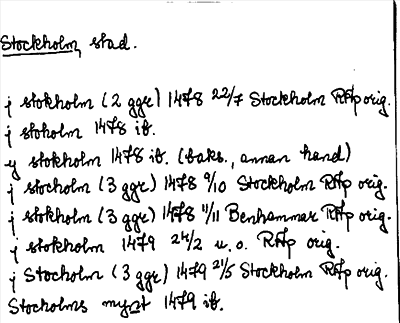 Stockholm, stad.
j stokholm (2 ggr) 1478 22/7 Stockholm RAp orig.
j stoholm 1478 ib.
y stokholm 1478 ib. (baks., annan hand)
j stocholm (3 ggr) 1478 9/10 Stockholm RAp orig.
j stokholm (3 ggr) 1478 11/11 Benhammar RAp orig.
j stokholm 1479 24/2 u.o. RAp orig.
j Stocholm (3 ggr) 1479 21/5 Stockholm RAp orig.
Stocholms mynt 1479 ib.